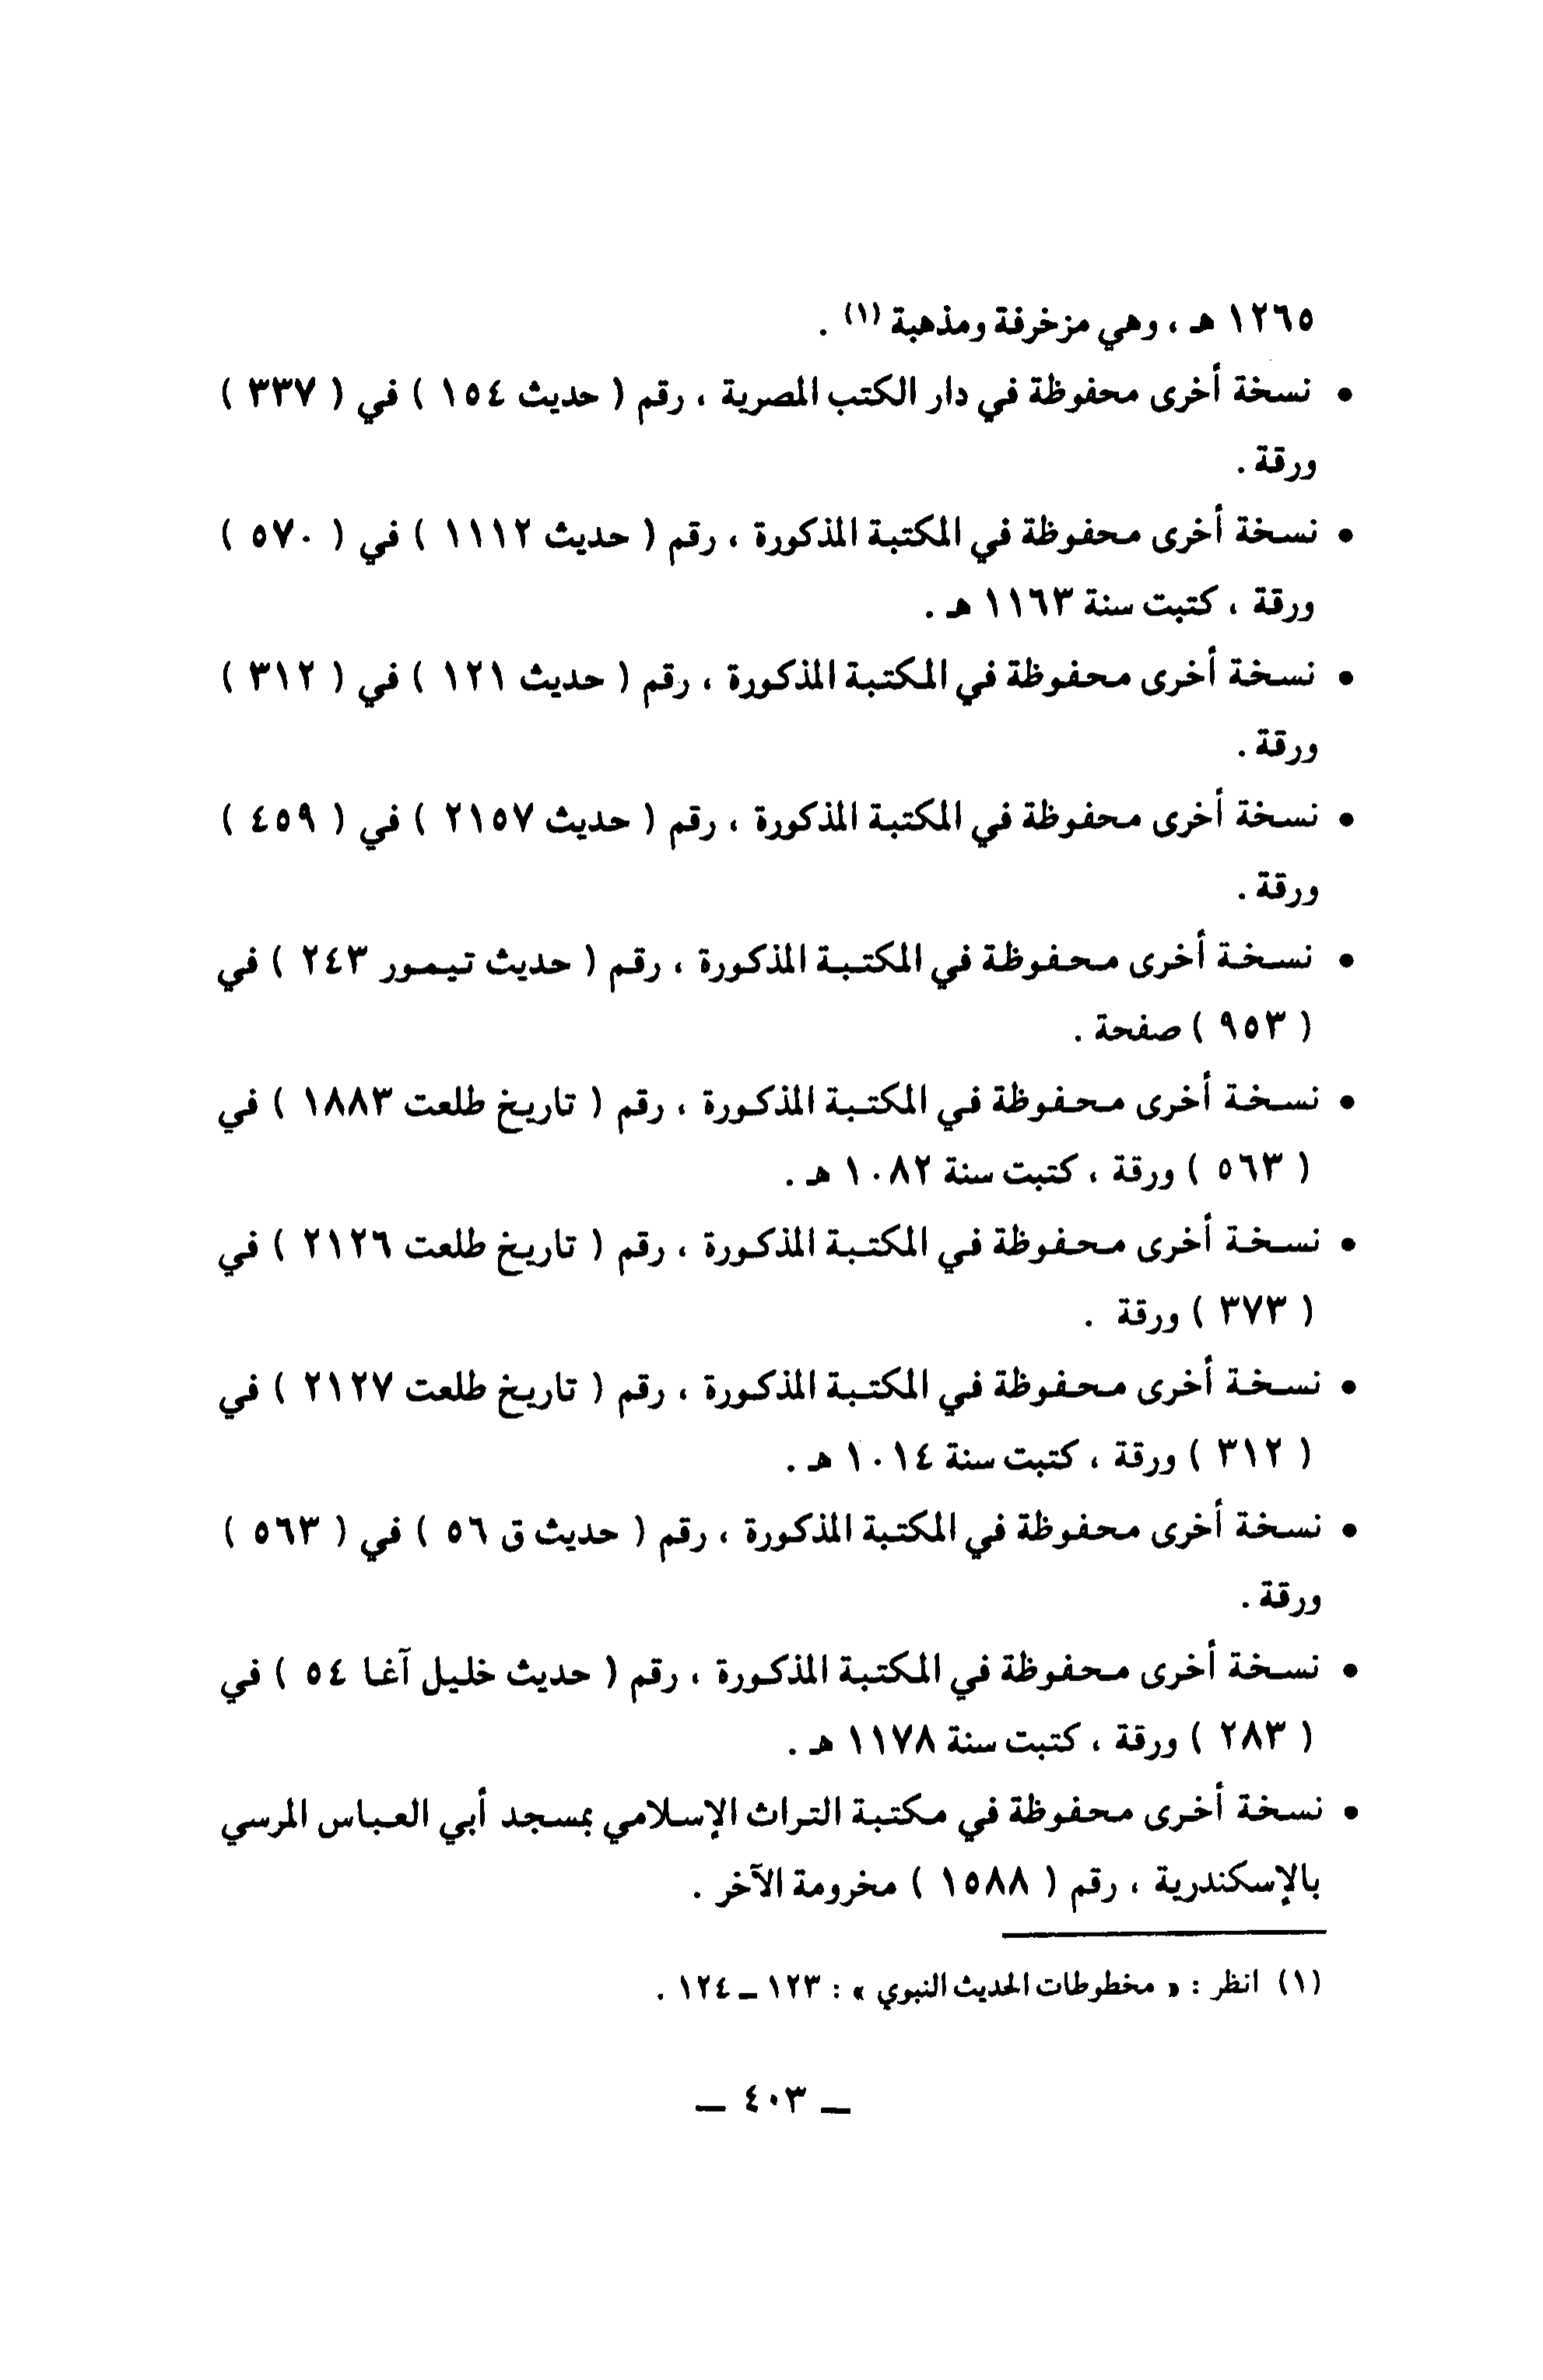 ١٢٦٥ هـ ، وهي مزخرفة ومذهبة (١) .
• نسخة أخرى محفوظة في دار الكتب المصرية ، رقم ( حديث ١٥٤ ) في ( ٣٣٧ )
ورقة .
• نسخة أخرى محفوظة في المكتبة المذكورة ، رقم ( حديث ١١١٢ ) في ( ٥٧٠ )
ورقة ، كتبت سنة ١١٦٣ هـ .
• نسخة أخرى محفوظة في المكتبة المذكورة ، رقم ( حديث ١٢١ ) في ( ٣١٢ )
ورقة .
• نسخة أخرى محفوظة في المكتبة المذكورة ، رقم ( حديث ٢١٥٧ ) في ( ٤٥٩ )
ورقة .
• نسخة أخرى محفوظة في المكتبة المذكورة ، رقم ( حديث تيمور ٢٤٣ ) في
( ٩٥٣ ) صفحة .
• نسخة أخرى محفوظة في المكتبة المذكورة ، رقم ( تاريخ طلعت ١٨٨٣ ) في
( ٥٦٣ ) ورقة ، كتبت سنة ١٠٨٢ هـ .
• نسخة أخرى محفوظة في المكتبة المذكورة ، رقم ( تاريخ طلعت ٢١٢٦ ) في
( ٣٧٣ ) ورقة .
• نسخة أخرى محفوظة في المكتبة المذكورة ، رقم ( تاريخ طلعت ٢١٢٧ ) في
( ٣١٢ ) ورقة ، كتبت سنة ١٠١٤ هـ .
• نسخة أخرى محفوظة في المكتبة المذكورة ، رقم ( حديث ق ٥٦ ) في ( ٥٦٣ )
ورقة .
• نسخة أخرى محفوظة في المكتبة المذكورة ، رقم ( حديث خليل آغا ٥٤ ) في
( ٢٨٣ ) ورقة ، كتبت سنة ١١٧٨ هـ .
• نسخة أخرى محفوظة في مكتبة التراث الإسلامي بمسجد أبي العباس المرسي
بالإسكندرية ، رقم ( ١٥٨٨ ) مخرومة الآخر .
(١) انظر : « مخطوطات الحديث النبوي » : ١٢٣ ـ ١٢٤ .
ـ ٤٠٣ ـ